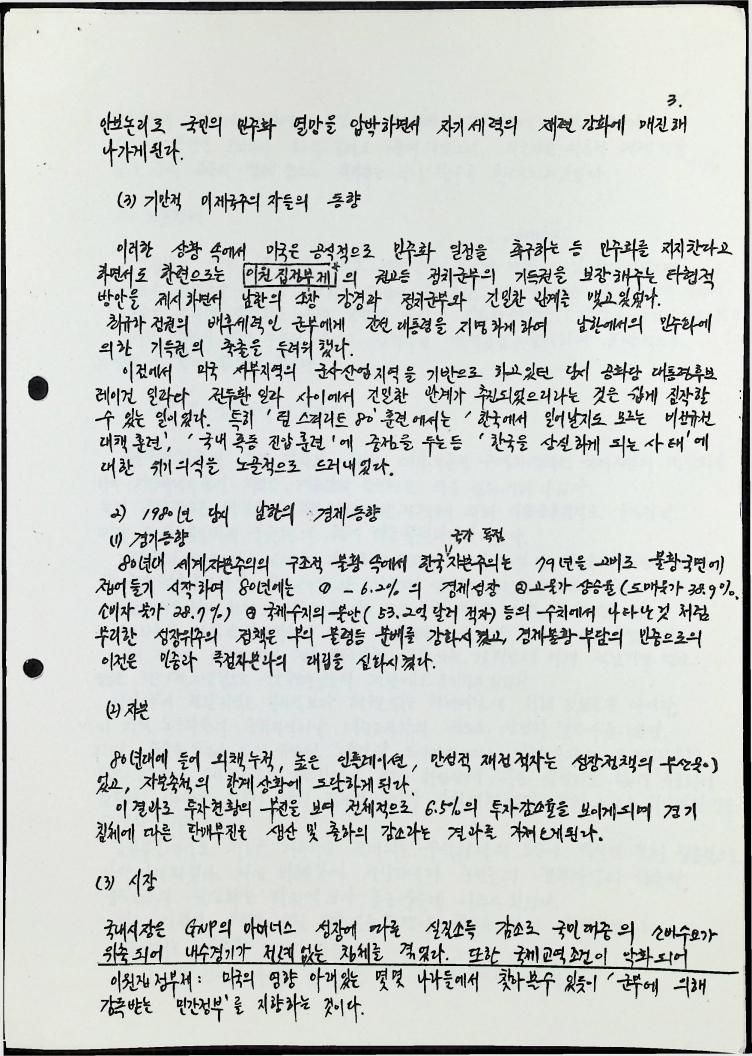 3.
안보논리로 국민의 민주화 열망을 압박하면서 자기세력의 재편 강화에 매진해
나가게된다.
(3) 기만적 미제국주의 자들의 동향
이러한 상황 속에서 미국은 공식적으로 민주화 일정을 촉구하는 등 민주화를 지지한다고
하면서도 한편으로는 이원집정부제* 의 정치군부의 기득권을 보장해주는 타협적
방안을 제시하면서 남한의 소장 강경파 정치군부와 긴밀한 관계를 맺고있었다.
최규하 정권의 배후세력인 군부에게 차선 대통령을 지명하게하여 남한에서의 민주화에
의한 기득권의 축출을 두려워했다.
이점에서 미국 서부지역의 군사산업지역을 기반으로 하고있던 당시 공화당 대통령후보
레이건 일파다 전두환 일파 사이에서 긴밀한 관계가 추진되었으리라는 것은 쉽게 짐작할
수 있는 일이었다. 특히 '팀 스피리트 80' 훈련에서는 '한국에서 일어날지도 모르는 비정규전
대책훈련', '국내 폭동 진압훈련'에 중점을 두는등 '한국을 상실하게 되는사태'에
대한 위기의식을 노골적으로 드러내었다.
2) 1980년 당시 남한의 경제동향
(1) 경기동향
80년대 세계자본주의의 구조적 불황 속에서 한국 국가 독점 자본주의는 79년을 고비로 불황국면에
접어들기 시작하여 80년에는 ① -6.2%의 경제성장 ② 고물가 상승율 (도매물가 38.9%,
소비자 물가 28.7%) ③ 국제수지의 불안 (53.2억 달러 적자) 등의 수치에서 나타난것 처럼
무리한 성장위주의 정책은 부의 불평등 분배를 강화시켰고, 경제불황 부담의 민중으로의
이전은 민중과 독점자본과의 대립을 심화시켰다.
(2) 자본
80년대에 들어 외채누적, 높은 인플레이션, 만성적 재정적자는 성장정책의 부산물이
었고, 자본축적의 한계상황에 도달하게된다.
이결과로 투자현황의 부진을 보여 전체적으로 6.5%의 투자감소율을 보이게되며 경기
침체에 따른 판매부진은 생산 및 출하의 감소라는 결과를 가져오게된다.
(3) 시장
국내시장은 GNP의 마이너스 성장에 따른 실질소득 감소로 국민대중의 소비수요가
위축되어 내수경기가 전례없는 침체를 겪었다. 또한 국제교역조건이 악화되어
이원집정부제: 미국의 영향 아래있는 몇몇 나라들에서 찾아볼수 있듯이 '군부에 의해
감독받는 민간정부'를 지향하는 것이다.